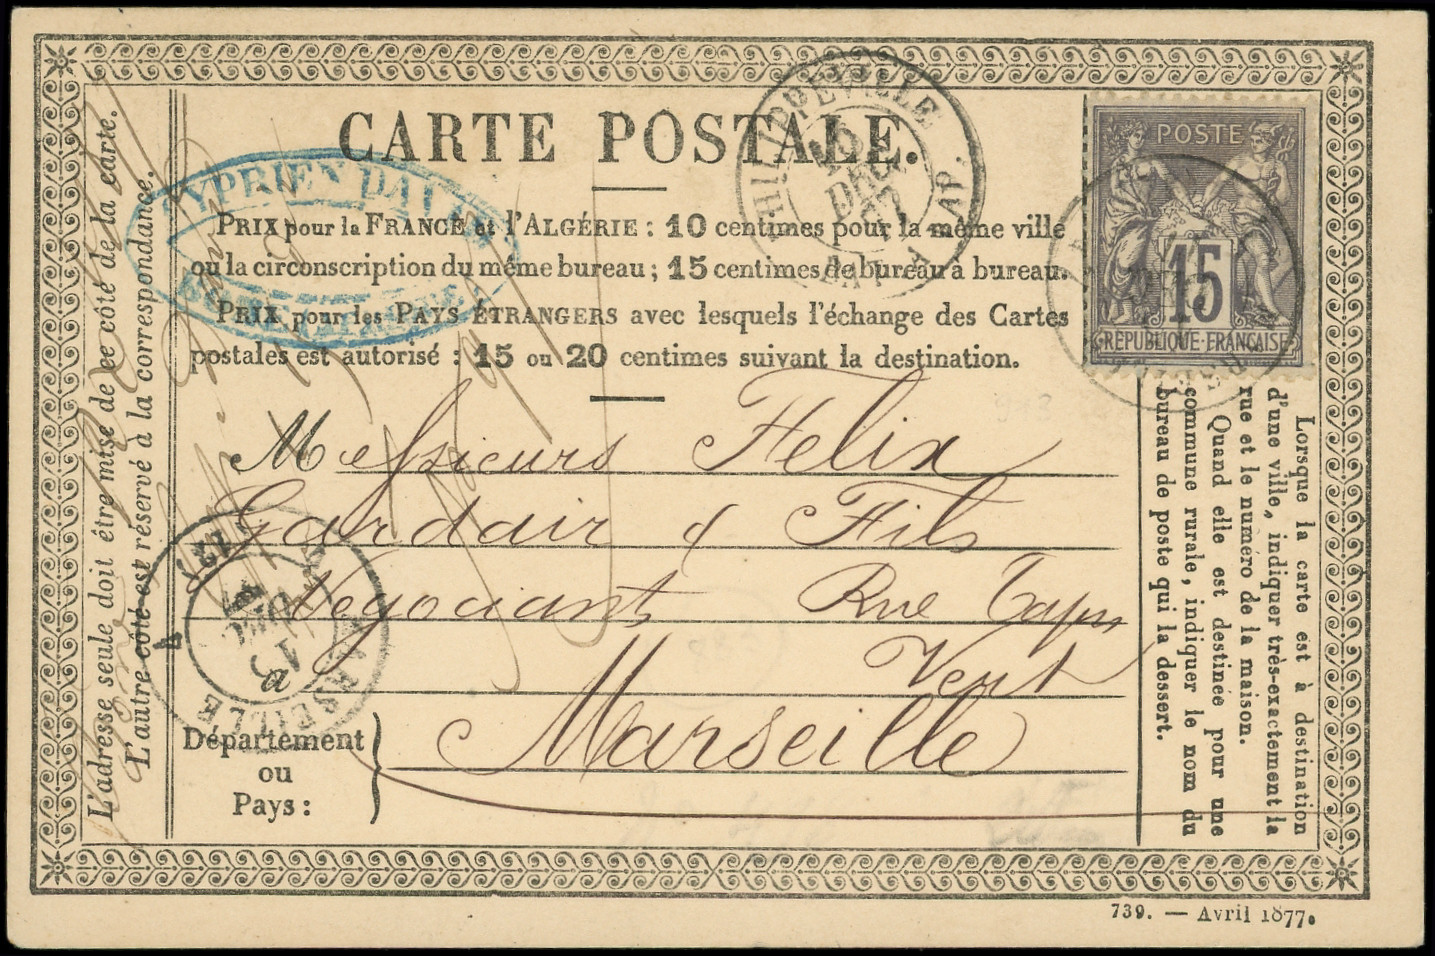 CARTE POSTALE.
PRIX pour la FRANCE et l'ALGÉRIE : 10 centimes pour la même ville
ou la circonscription du même bureau ; 15 centimes de bureau à bureau.
PRIX pour les PAYS ÉTRANGERS avec lesquels l'échange des Cartes
postales est autorisé : 15 ou 20 centimes suivant la destination.
CYPRIEN
PHILIPPEVILLE
DEC.
77
POSTE
15
RÉPUBLIQUE FRANÇAISE
L'adresse seule doit être mise de ce côté de la carte.
L'autre côté est réservé à la correspondance.
Messieurs Felix
Gardair & Fils
Négociants Rue Tapis
Vert
à
Marseille
Département
ou
Pays :
MARSEILLE
15
DEC
Lorsque la carte est à destination
d'une ville, indiquer très-exactement la
rue et le numéro de la maison.
Quand elle est destinée pour une
commune rurale, indiquer le nom du
bureau de poste qui la dessert.
739. — Avril 1877.